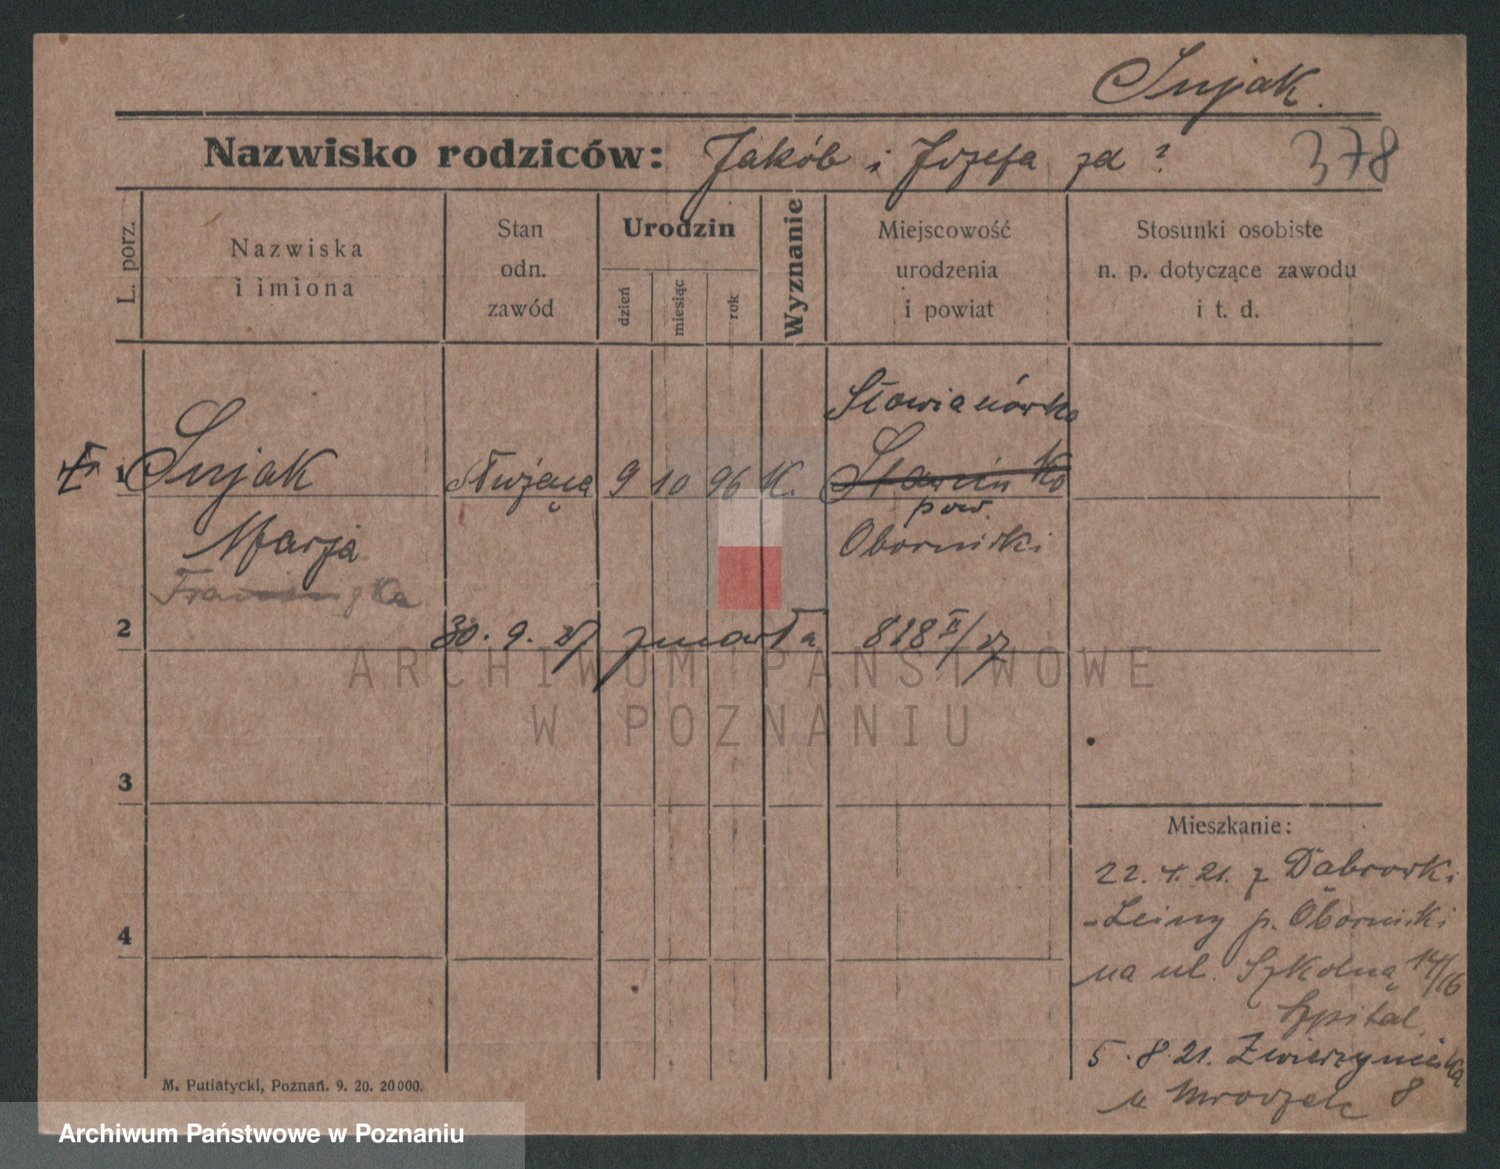 Sujak.
Nazwisko rodziców: Jakób i Józefa zd ?
378
L. porz.
Nazwiska
i imiona
Stan
odn.
zawód
Urodzin
dzień
miesiąc
rok
Wyznanie
Miejscowość
urodzenia
i powiat
Stosunki osobiste
n. p. dotyczące zawodu
i t. d.
Słowianówko
1 Sujak służąca 9 10 96 K.
pow.
Marja Oborniki
Franciszka
2 30. 9. 27 zmarła 828 II/27
ARCHIWUM PAŃSTWOWE
W POZNANIU
3
Mieszkanie:
22. 4. 21. z Dąbrowki
-Leśny p. Oborniki
4
na ul. Szkolną 14/16
Szpital.
5. 8. 21. Zwierzyniecka
u Mrowzek 8
M. Putiatycki, Poznań. 9. 20. 20000.
Archiwum Państwowe w Poznaniu